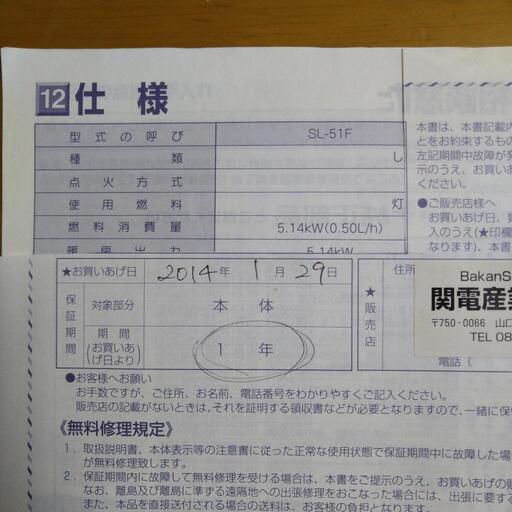 12 仕様
型式の呼び SL-51F
種類 し
点火方式
使用燃料 灯
燃料消費量 5.14kW(0.50L/h)
暖房出力 5.14kW
本書は、本書記載内
とをお約束するもの
左記期間中故障が発
示のうえ、お買いあ
ください。
●ご販売店様へ
お買いあげ日、貴
入のうえ(★印欄
なります)、本書
★お買いあげ日 2014年 1月 29日
保証期間 対象部分 本体
期間(お買いあげ日より) 1年
住所
★販売店
BakanS
関電産業
〒750-0066 山口
TEL 08
電話(
●お客様へお願い
お手数ですが、ご住所、お名前、電話番号をわかりやすくご記入ください。
販売店の記載がないときは、それを証明する領収書などが必要となりますので、一緒に保
《無料修理規定》
1．取扱説明書、本体表示等の注意書に従った正常な使用状態で保証期間中に故障した場
が無料修理致します。
2．保証期間内に故障して無料修理を受ける場合は、本書をご提示のうえ、お買いあげの販
なお、離島及び離島に準ずる遠隔地への出張修理をおこなった場合には、出張に要する
また、本品を直接送付される場合の送料は、お客様の負担となります。